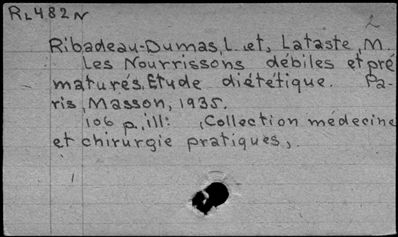 RL482N
2
Ribadeau-Dumas, L. et, Lataste, M.
Les Nourrissons débiles et pré
maturés. Etude diététique. Pa-
ris, Masson, 1935.
106 p., ill: , Collection médecine
et chirurgie pratiques,.
1